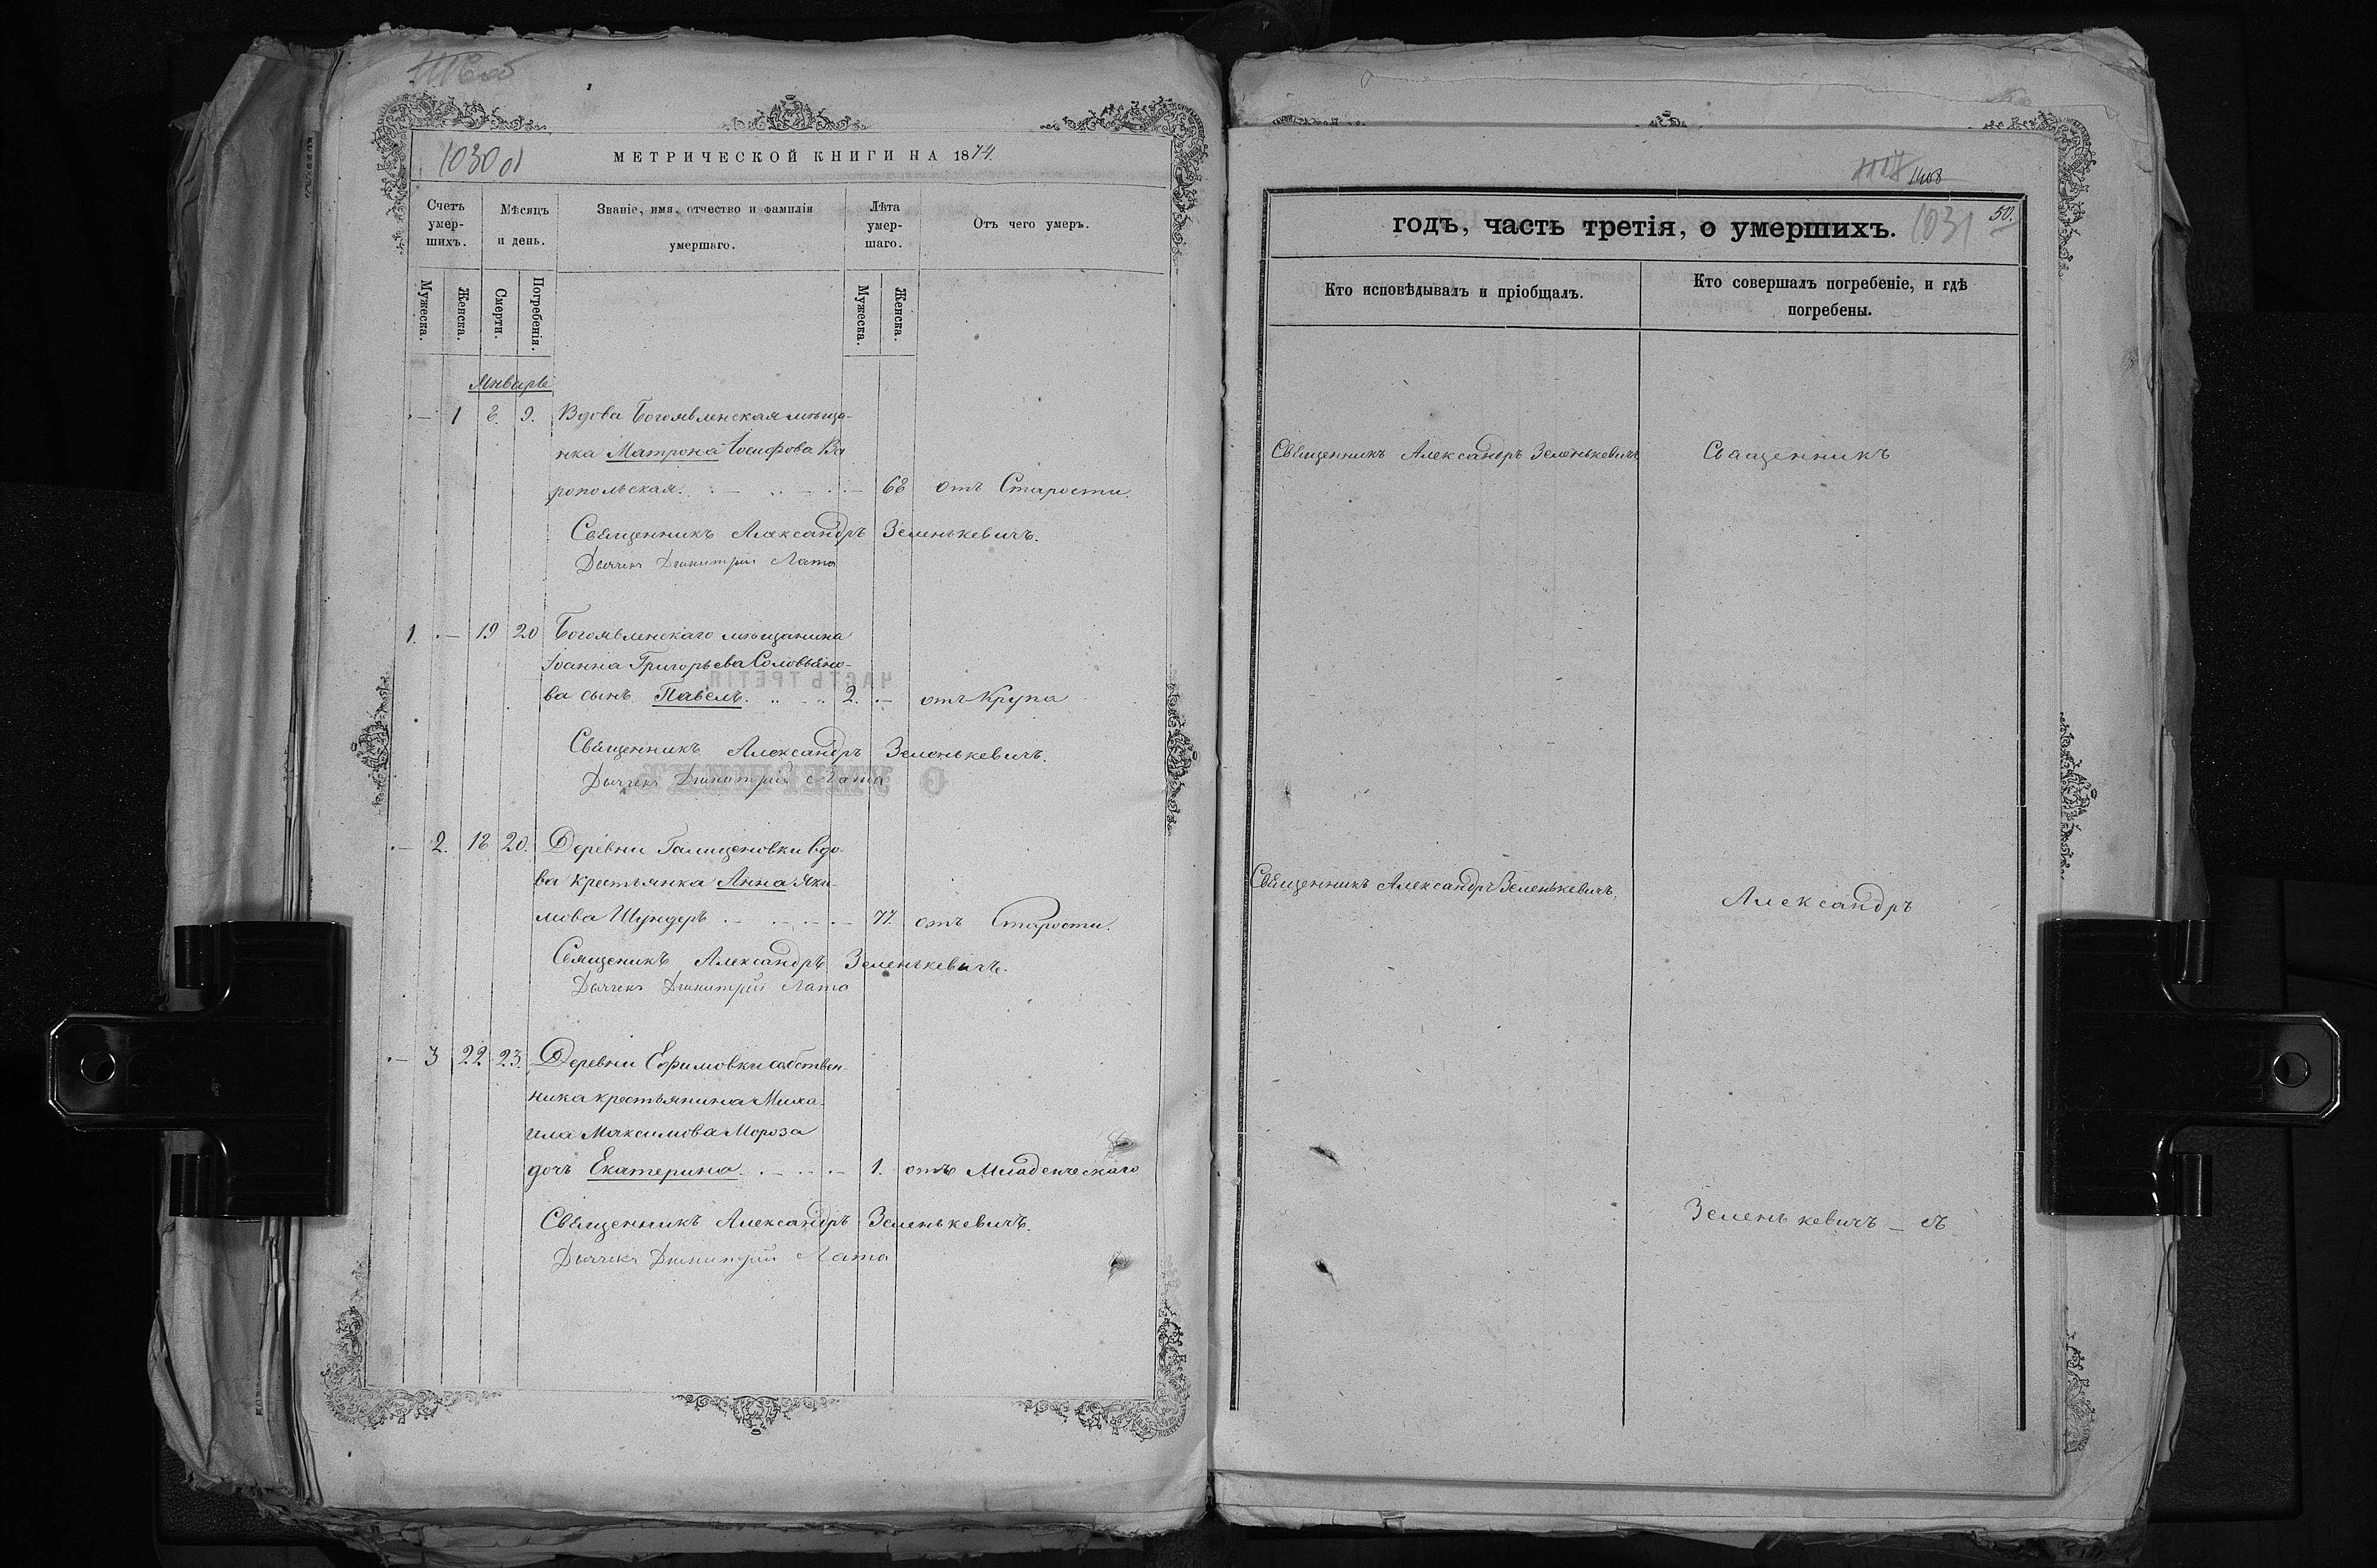 1030 об
МЕТРИЧЕСКОЙ КНИГИ НА 1874.
Счетъ умершихъ.
Мѣсяцъ и день.
Званіе, имя, отчество и фамилія умершаго.
Лѣта умершаго.
Отъ чего умеръ.
Мужеска.
Женска.
Смерти.
Погребенія.
Мужеска.
Женска.
Январь
— 1 8. 9. Вдова Богоявленская мѣща-
нка Матрона Іосифова Ва
ропольская. 68 отъ Старости.
Священникъ Александръ Зеленькевичъ.
Дьячекъ Димитрій Лата
1. — 19 20 Богоявленскаго мѣщанина
Іоанна Григорьева Соловьяно-
ва сынъ Павелъ. 2. — отъ Крупа
Священникъ Александръ Зеленькевичъ.
Дьячекъ Димитрій Лата
— 2. 18 20. Деревни Галицыновки вдо-
ва крестьянка Анна Яки-
мова Шундеръ 77. отъ Старости.
Священикъ Александръ Зеленькевичъ.
Дьячекъ Димитрій Лата
— 3 22 23. Деревни Ефимовки собствен
ника крестьянина Миха-
ила Максимова Мороза
дочь Екатерина. — 1. отъ Младенческаго
Священникъ Александръ Зеленькевичъ.
Дьячекъ Димитрій Лата
1408
50.
годъ, часть третія, о умершихъ. 1031
Кто исповѣдывалъ и пріобщалъ.
Кто совершалъ погребеніе, и гдѣ
погребены.
Священникъ Александръ Зеленькевичъ
Священникъ
Священникъ Александръ Зеленькевичъ,
Александръ
Зеленькевичъ — съ